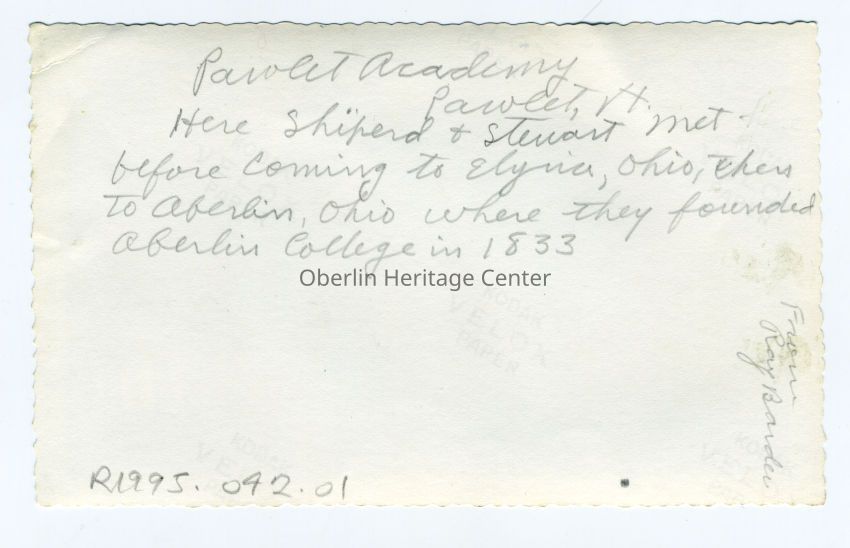 Pawlet Academy
Pawlet, Vt.
Here Shiperd & Stewart met
before coming to Elyria, Ohio, then
to Oberlin, Ohio where they founded
Oberlin College in 1833
Oberlin Heritage Center
KODAK
VELOX
PAPER
From
Ray Barden
R1995.042.01